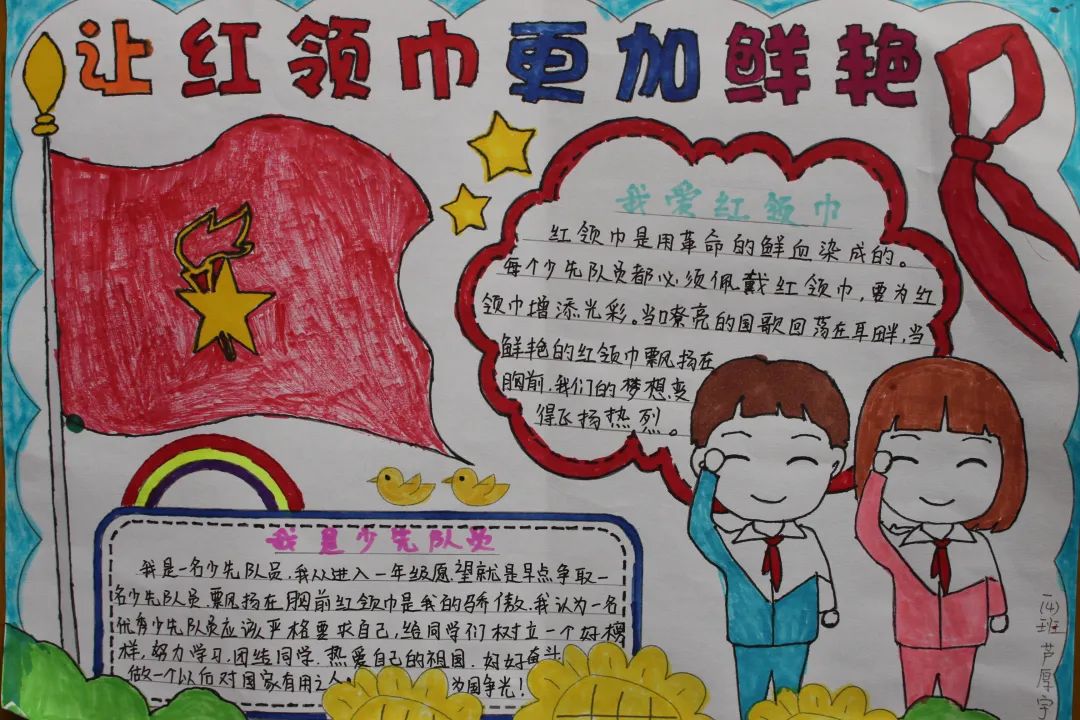 让红领巾更加鲜艳
我爱红领巾
红领巾是用革命的鲜血染成的。
每个少先队员都必须佩戴红领巾,要为红
领巾增添光彩。当嘹亮的国歌回荡在耳畔,当
鲜艳的红领巾飘扬在
胸前,我们的梦想变
得飞扬热烈。
我是少先队员
我是一名少先队员,我从进入一年级愿望就是早点争取一
名少先队员,飘扬在胸前红领巾是我的骄傲,我认为一名
优秀少先队员应该严格要求自己,给同学们树立一个好榜
样,努力学习,团结同学,热爱自己的祖国,好好奋斗
做一个以后对国家有用之人,为国争光!
一(4)班 芦厚宇